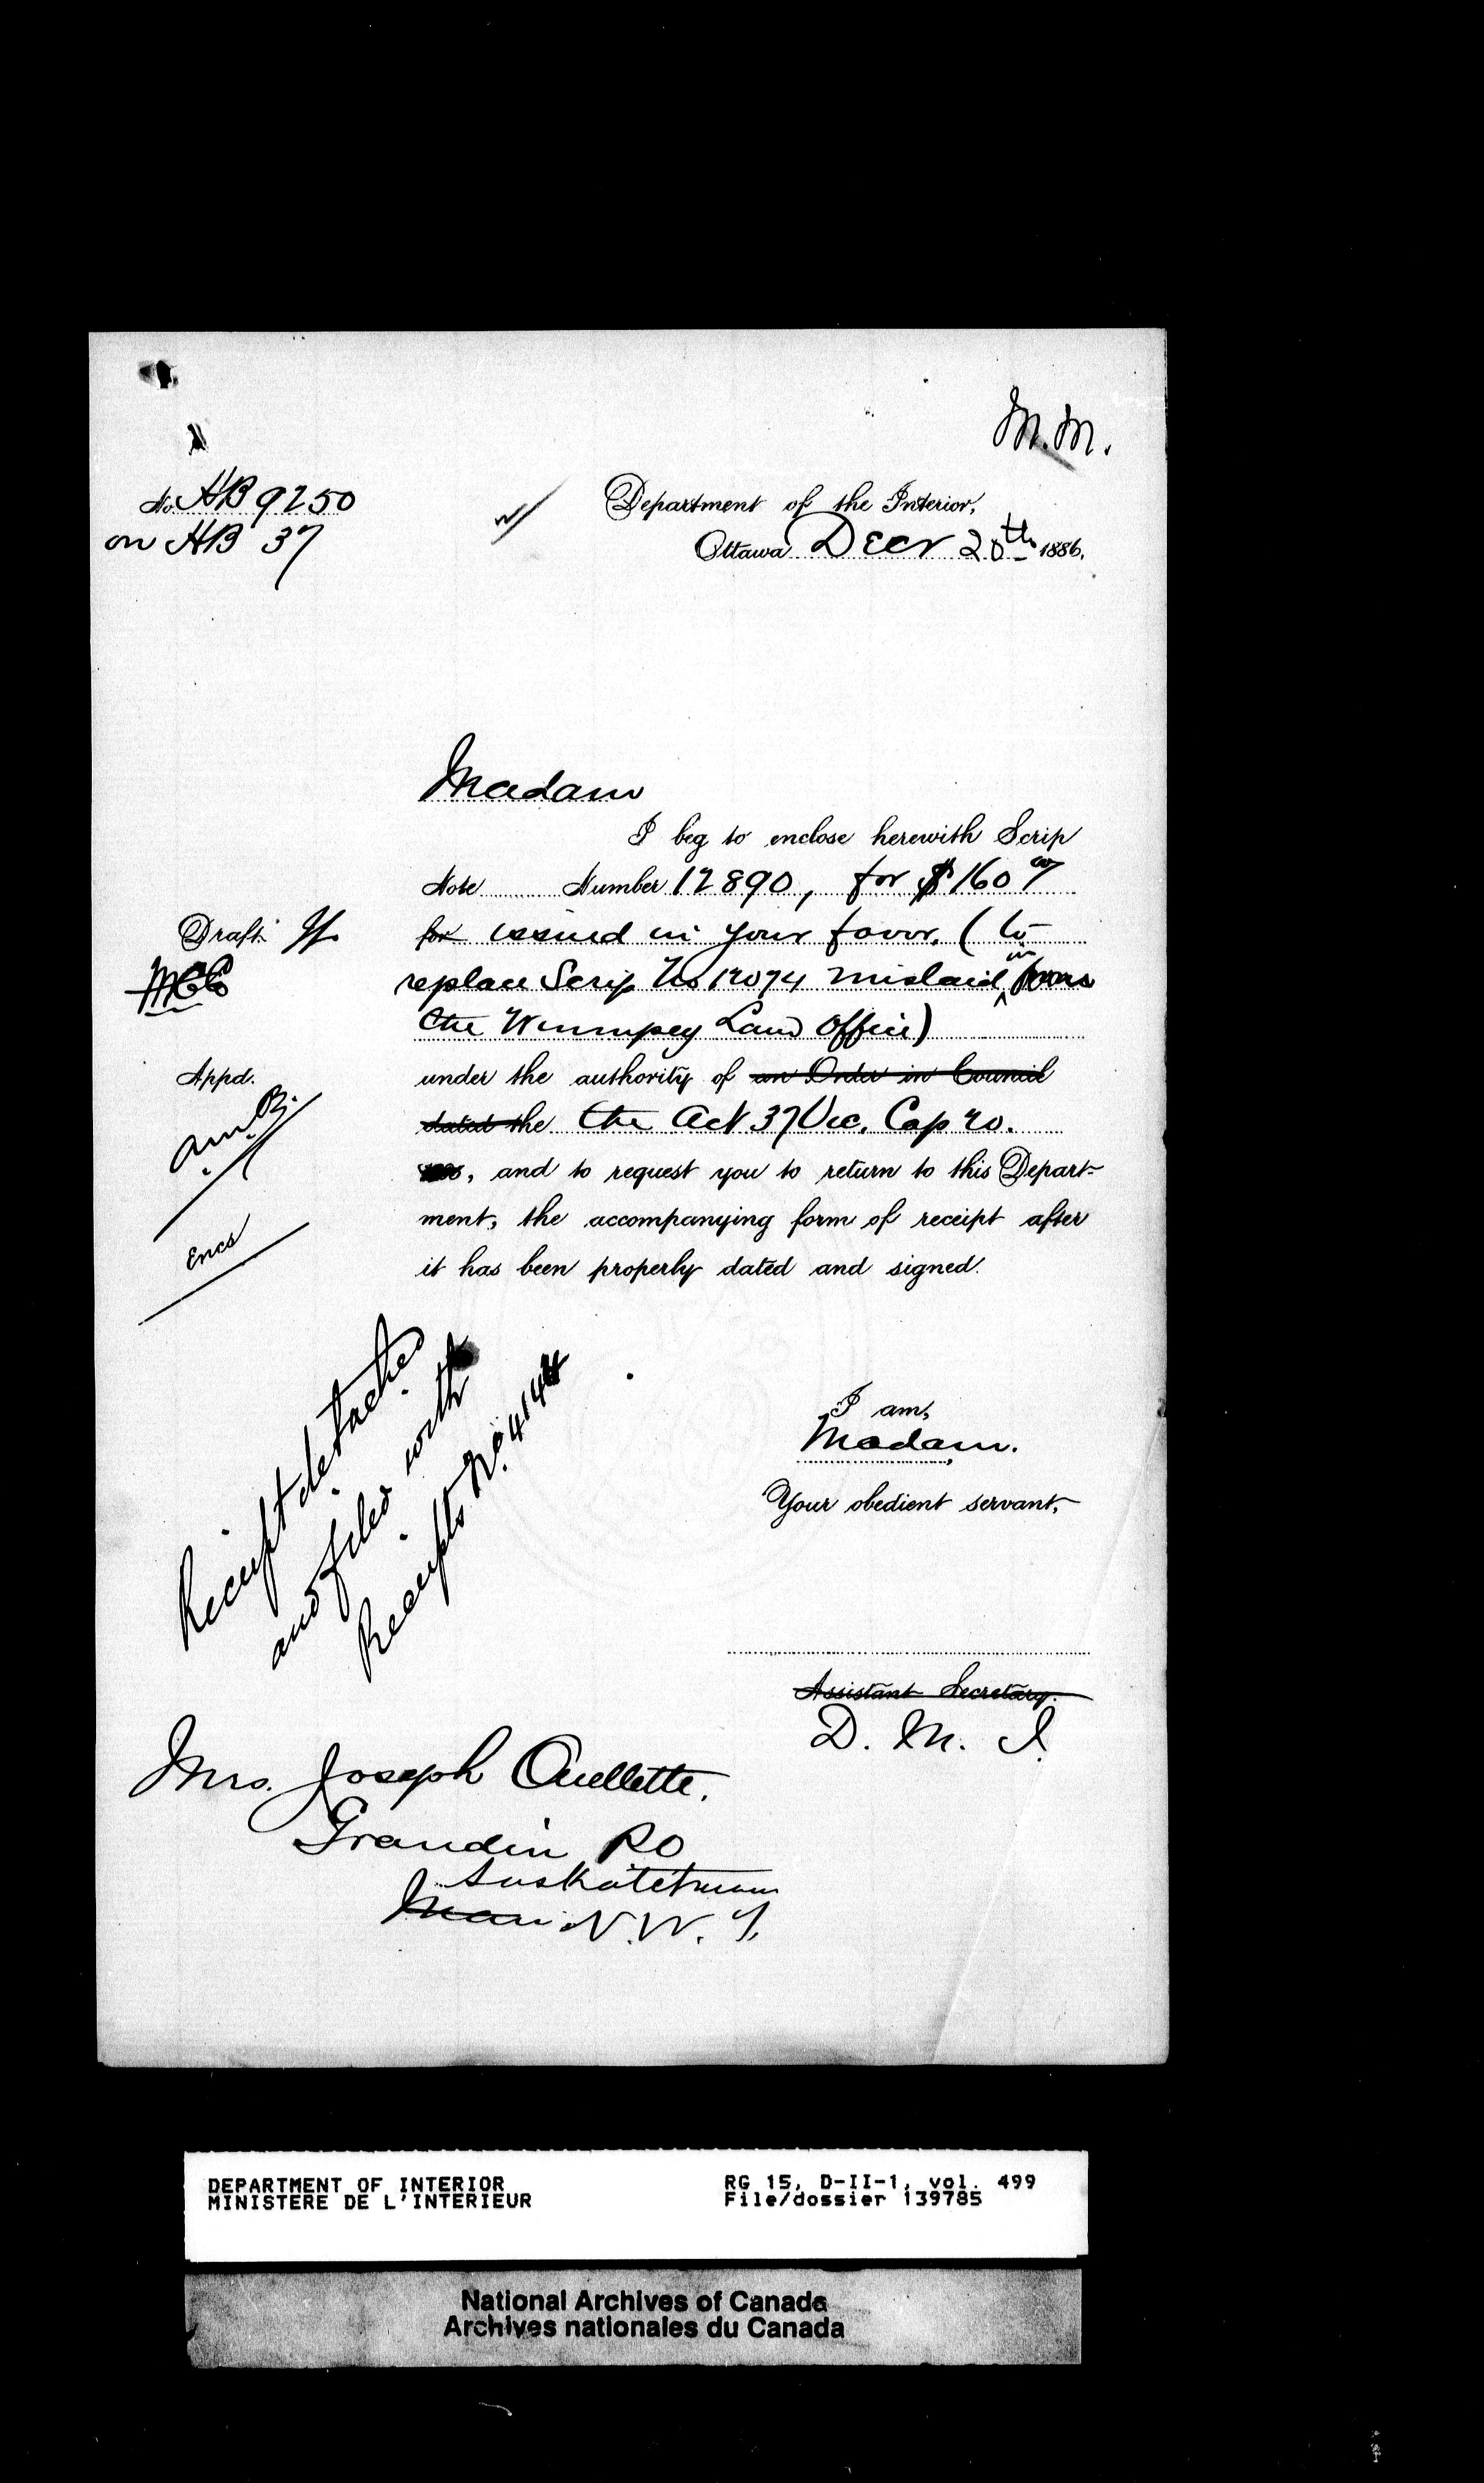 M.M.
No. HB 9250
on HB 37
Department of the Interior,
Ottawa Decr 20th 1886.
Madam
I beg to enclose herewith Scrip
Note Number 12890, for $160 00/
for issued in your favor. (to
replace Scrip No 12074 mislaid in from
the Winnipeg Land Office)
Draft.
Appd.
under the authority of an Order in Council
dated the the Act 37 Vic. Cap 20.
A.M.B.
, and to request you to return to this Depart-
ment, the accompanying form of receipt after
it has been properly dated and signed.
Encs
Receipt detached
and filed with
Receipts No. 4144
I am,
Madam.
Your obedient servant,
Assistant Secretary.
D. M. I.
Mrs. Joseph Ouellette.
Grandin PO
Saskatchewan
Man N.W.T.
DEPARTMENT OF INTERIOR RG 15, D-II-1, vol. 499
MINISTERE DE L'INTERIEUR File/dossier 139785
National Archives of Canada
Archives nationales du Canada